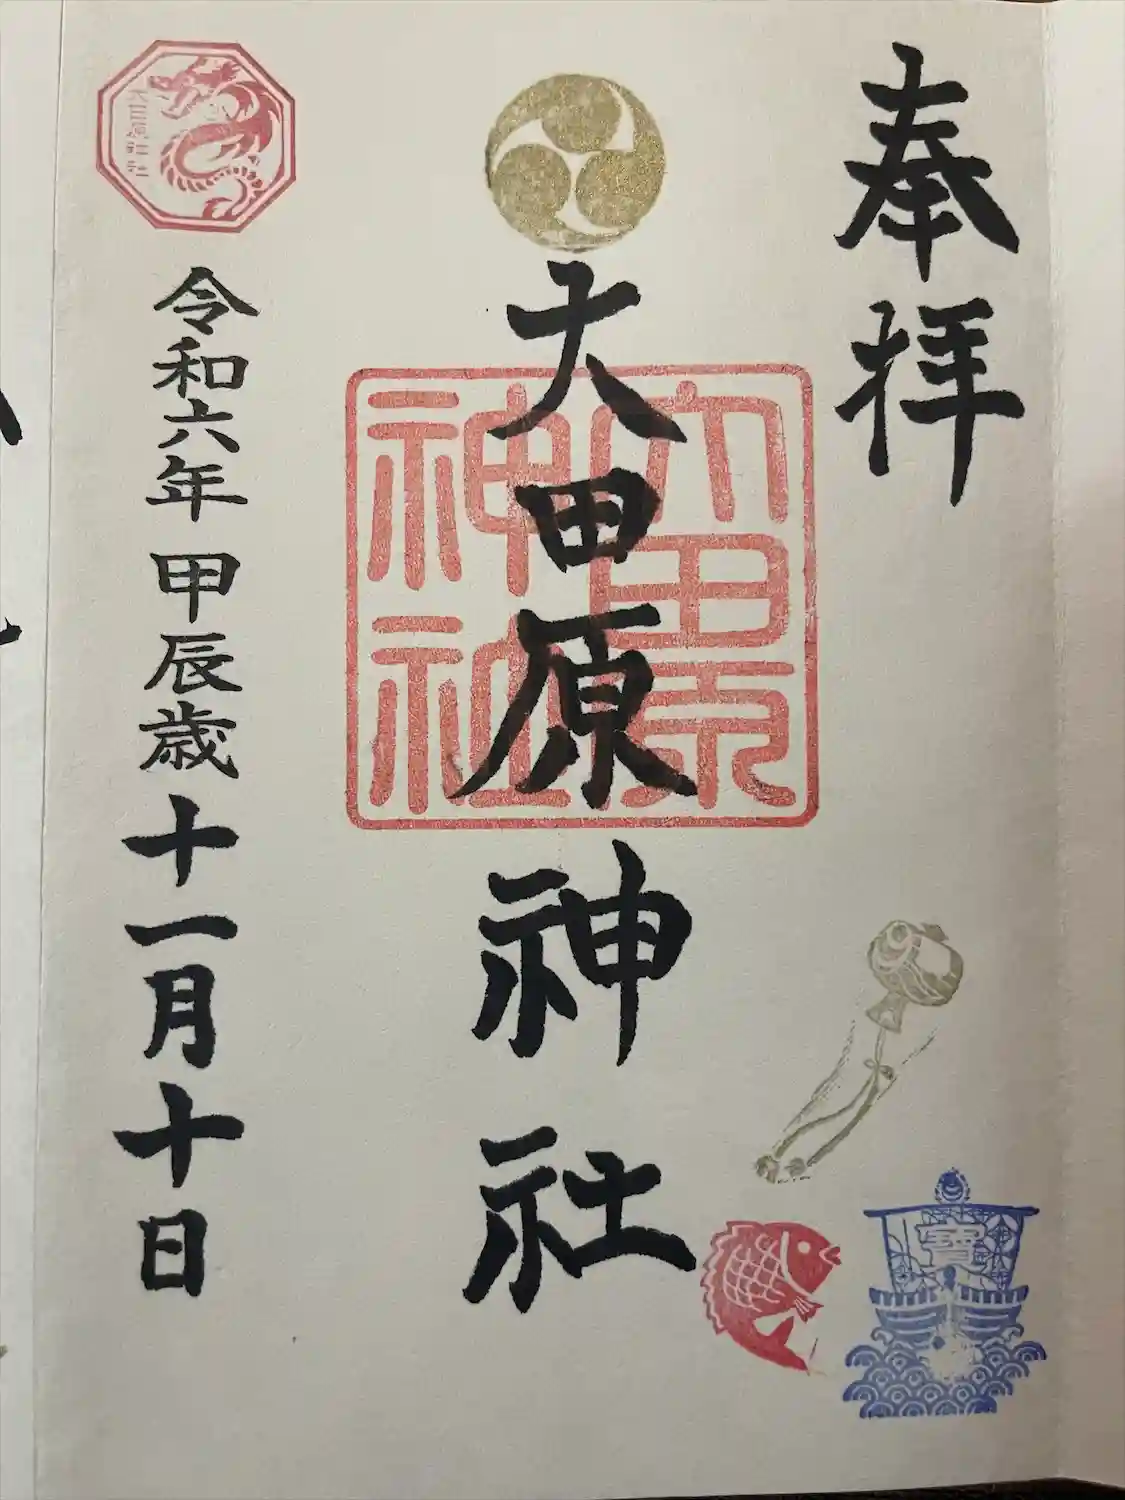 奉拝
大田原神社
大田原
神社
令和六年 甲辰歳十一月十日
寶